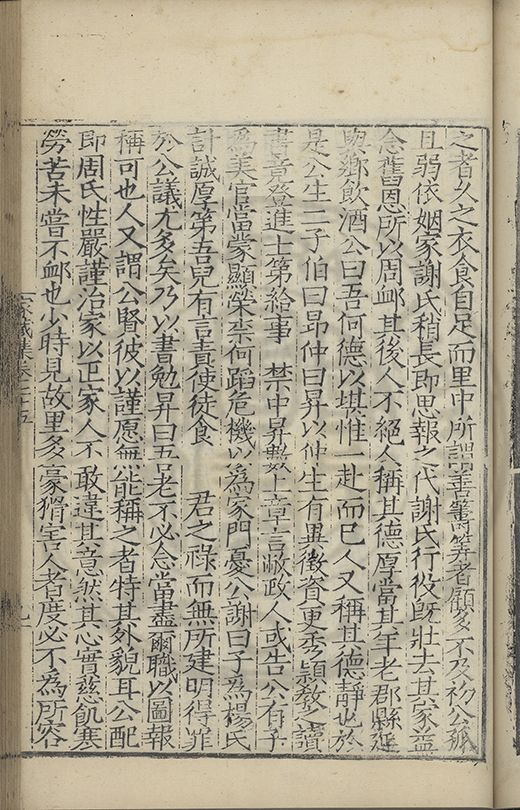 之者久之衣食自足而里中所謂善籌筭者顧多不及初公孤
且弱依姻家謝氏稍長即思報之代謝氏行役旣壯去其家益
念舊恩所以周䘏其後人不絕人稱其德厚當其年老郡縣延
與鄉飲酒公曰吾何德以堪惟一赴而已人又稱其德靜也於
是公生二子伯曰昂仲曰昇以仲生有異徵資更秀穎敎之讀
書竟登進士第給事 禁中昇數上章言敝政人或告公有子
爲美官當蒙顯榮柰何蹈危機以爲家門憂公謝曰子爲楊氏
計誠厚第吾兒有言責使徒食 君之祿而無所建明得罪
於公議尤多矣乃以書勉昇曰吾老不必念當盡爾職以圖報
稱可也人又謂公賢彼以謹愿無能稱之者特其外貌耳公配
即周氏性嚴謹治家以正家人不敢違其意然其心實慈飢寒
勞苦未嘗不䘏也少時見故里多豪猾害人者度必不爲所容
家藏集卷